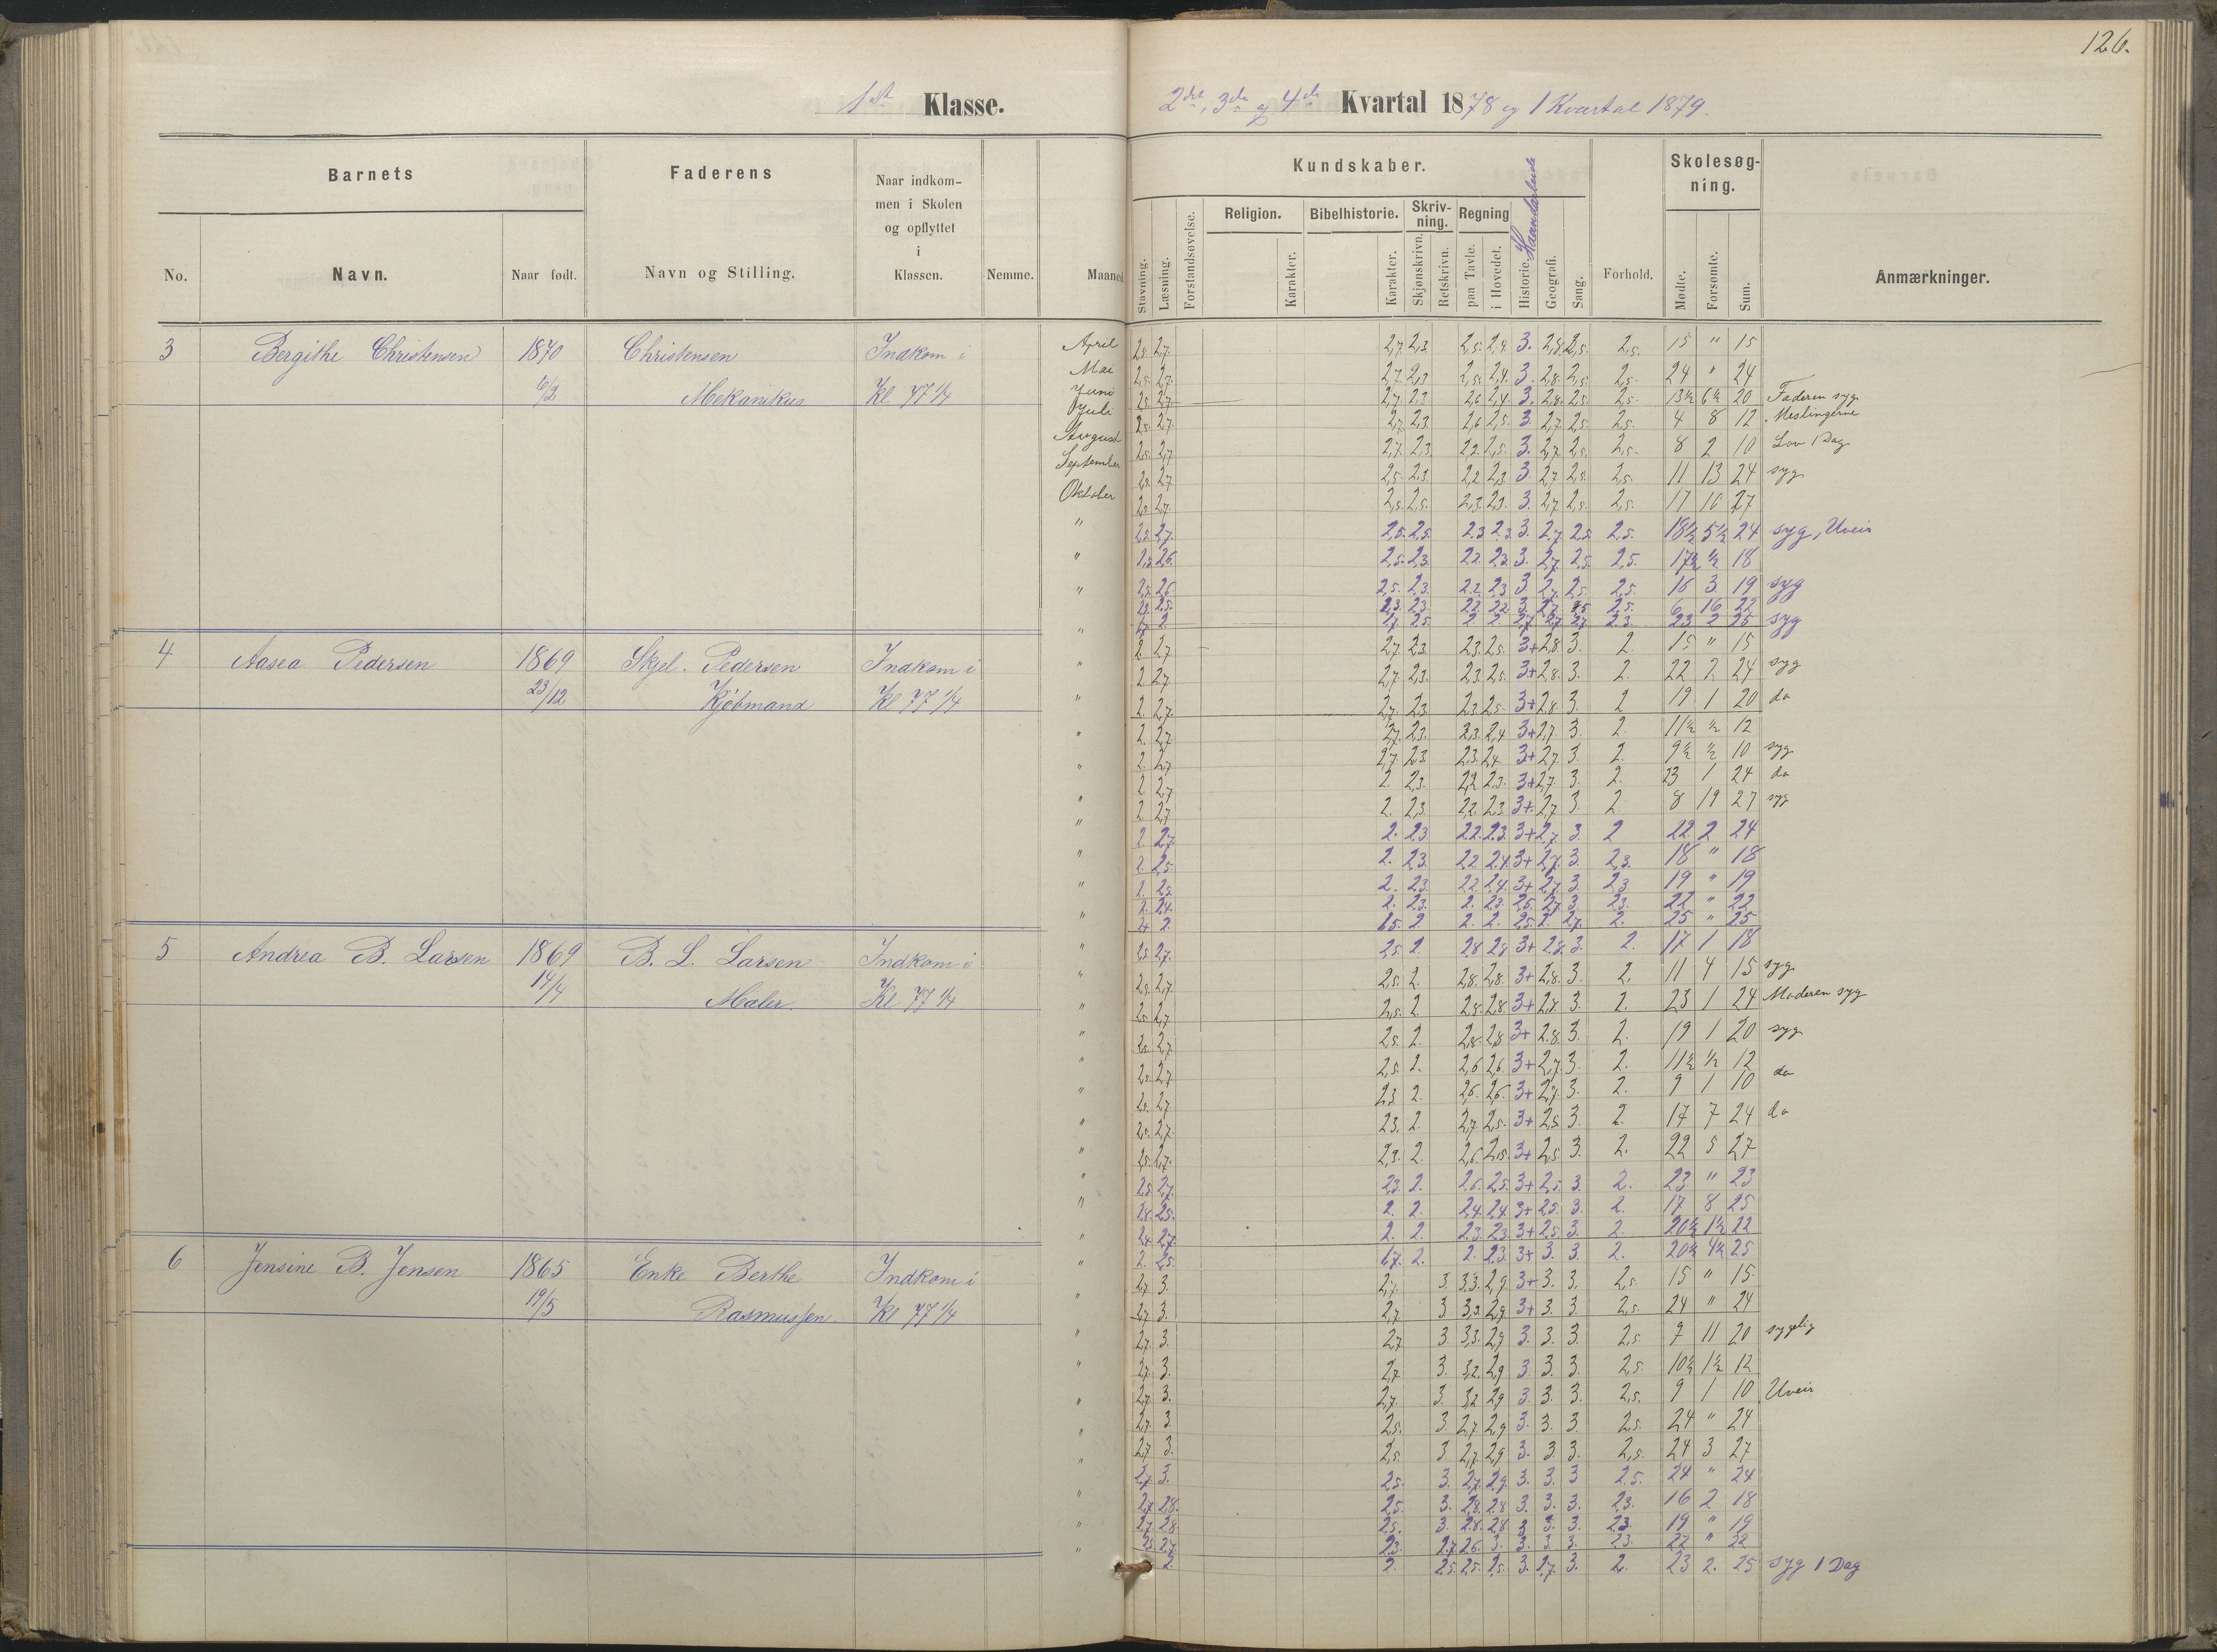 126.
1st Klasse.
2det, 3die og 4de Kvartal 1878 og 1 Kvartal 1879.
Barnets
Faderens
Naar indkom-
men i Skolen
og opflyttet
i
Klassen.
Kundskaber.
Skolesøg-
ning.
Religion. Bibelhistorie. Skriv-
ning. Regning
No. Navn. Naar født. Navn og Stilling. Nemme. Maaned
Stavning. Læsning. Forstandsøvelse. Karakter. Karakter. Skjønskrivn. Retskrivn. paa Tavle. i Hovedet. Historie. Haandarbeide Geografi. Sang. Forhold. Mødte. Forsømte. Sum. Anmærkninger.
3 Bergithe Christensen 1870 Christensen Indkom i
6/2 Mekanikus Kl 77 1/4
April 2,5. 2,7. 2,7. 2,3 2,5. 2,4. 3. 2,8. 2,5. 2,5. 15 " 15
Mai 2,5. 2,7. 2,7. 2,3 2,5. 2,4. 3. 2,8. 2,5. 2,5. 24 " 24
Juni 2,5. 2,7. 2,7. 2,3. 2,6 2,4. 3. 2,8. 2,5. 2,5. 13½ 6½ 20 Faderen syg
Juli 2,5. 2,7. 2,7. 2,3 2,6 2,5. 3. 2,7 2,5. 2,5. 4 8 12 Meslingerne
August 2,5. 2,7 2,7. 2,3. 2,2. 2,5. 3. 2,7. 2,5. 2,5. 8 2 10 Lov 1 Dag
September 2,5. 2,7 2,5. 2,3. 2,2 2,3 3 2,7 2,5. 2,5. 11 13 24 syg
Oktober 2,5. 2,7. 2,5. 2,5. 2,3. 2,3. 3. 2,7 2,5. 2,5. 17 10 27
" 2,5. 2,7. 2,5. 2,5. 2,3 2,3. 3. 2,7 2,5. 2,5. 18½ 5½ 24 syg, Uveir
" 2,5. 2,3. 2,2. 2,3. 3. 2,7. 2,5. 2,5. 17½ ½ 18
" 2,5. 2,6. 2,5. 2,3. 2,2 2,3 3 2,7. 2,5. 2,5. 16 3 19 syg
2,3. 2,3. 2,2 2,2 3. 2,7. 2,5. 6 16 22
" 2. 2. 2. 2,3. 23 2 25 syg
4 Aasea Pedersen 1869 Skjel. Pedersen Indkom i
23/12 Kjøbmand Kl 77 1/4
2 2,7 2,7. 2,3. 2,3. 2,5. 3+ 2,8. 3. 2. 15 " 15
" 2. 2,7. 2,7 2,3. 2,3. 2,5. 3+ 2,8. 3. 2. 22 2 24 syg
" 2. 2,7. 2,7. 2,3. 2,3. 2,5. 3+ 2,8. 3. 2 19 1 20 do
" 2. 2,7. 2,7. 2,3. 2,3. 2,4 3+ 2,7. 3. 2. 11½ ½ 12
" 2. 2,7 2,7. 2,3. 2,3. 2,4. 3+ 2,7. 3. 2. 9½ ½ 10 syg
2. 2,7 2. 2,3. 2,2 2,3. 3+ 2,7. 3. 2. 23 1 24 do
" 2. 2,7 2. 2,3. 2,2. 2,3. 3+. 2,7 3. 2. 8 19 27 syg
" 2. 2,7. 2. 2,3. 2,2. 2,3. 3+ 2,7. 3. 2 22 2 24
" 2. 2,5. 2. 2,3. 2,2. 2,4. 3+ 2,7. 3. 2,3. 18 " 18
" 2. 2,5. 2. 2,3. 2,2 2,4. 3+ 2,7. 3. 2,3 19 " 19
2. 2,4. 2. 2,3. 2. 2,3. 2,5. 2,7. 3. 2,3. 22 " 22
" 2. 2. 2. 2. 2,5. 2 2,7. 2. 25 " 25
5 Andrea B. Larsen 1869 B. L. Larsen Indkom i
14/4 Maler. Kl 77 1/4
" 2,5. 2,7. 2,5. 2. 2,8 2,8 3+ 2,8. 3. 2. 17 1 18
" 2,5. 2,7 2,5. 2. 2,8. 2,8. 3+ 2,8. 3. 2. 11 4 15 syg
" 2,5. 2,7. 2,5. 2. 2,8. 2,8. 3+ 2,8. 3. 2. 23 1 24 Moderen syg
" 2,5. 2,7. 2,5. 2. 2,8. 2,8 3+ 2,8. 3. 2. 19 1 20 syg
" 2,5. 2,7 2,5. 2. 2,6 2,6. 3+ 2,7. 3. 2. 11½ ½ 12
" 2,5. 2,7. 2,3. 2. 2,6. 2,6. 3+ 2,7. 3. 2. 9 1 10 do
" 2,5. 2,7. 2,3. 2. 2,7. 2,5. 3+ 2,5 3. 2. 17 7 24 do
" 2,5. 2,7. 2,3. 2. 2,6. 2,5. 3+ 2,5. 3. 2. 22 5 27
" 2,5. 2,7. 2,3. 2. 2,6. 2,5. 3+ 2,5. 3. 2. 23 " 23
" 2,5. 2. 2. 2,4. 2,4 3+ 2,5. 3. 2. 17 8 25
" 2,7. 2. 2. 2,3. 2,3 3+ 2,5 3. 2. 20½ 1½ 22
" 2. 2,5. 1,7. 2. 2. 2,3. 3+ 3. 3. 2. 20½ 4½ 25
6 Jensine B. Jensen 1865 Enke Berthe Indkom i
19/5 Rasmussen. Kl 77 1/4
2,7. 3. 2,7. 3. 3,3. 2,9 3+ 3. 3. 2,5. 15 " 15
" 2,7 3. 2,7 3 3,3. 2,9 3+ 3. 3 2,5. 24 " 24
" 2,7. 3. 2,7 3 3,3. 2,9 3. 3. 3. 2,5 9 11 20 sygelig
" 2,7. 3. 2,7. 3. 3,2. 2,9 3. 3 3 2,5. 10½ 1½ 12
" 2,7 3. 2,7. 3. 3,2 2,9 3. 3. 3. 2,5. 9 1 10 Uveir
" 2,7. 3 2,5. 3. 2,7. 2,9 3. 3. 3 2,5. 24 " 24
" 2,7. 3. 2,5. 3 2,7. 2,9 3. 3 3. 2,5. 24 3 27
" 2,7. 3. 2,5. 3. 2,7. 2,9. 3. 3. 3 2,5. 24 " 24
" 2,7. 2,8. 2,5. 3. 2,8. 2,8 3. 3. 3. 2,3. 16 2 18
" 2,7. 2,8. 2,5. 3. 2,8. 2,8 3 3. 3. 2,3. 19 " 19
" 2,5. 2,7. 2,3. 2,7. 2,6. 3. 3. 3 3. 2,3. 22 " 22
2. 2. 2,5. 2,5. 2,5. 3. 2,7. 3. 2. 23 2. 25 syg 1 Dag